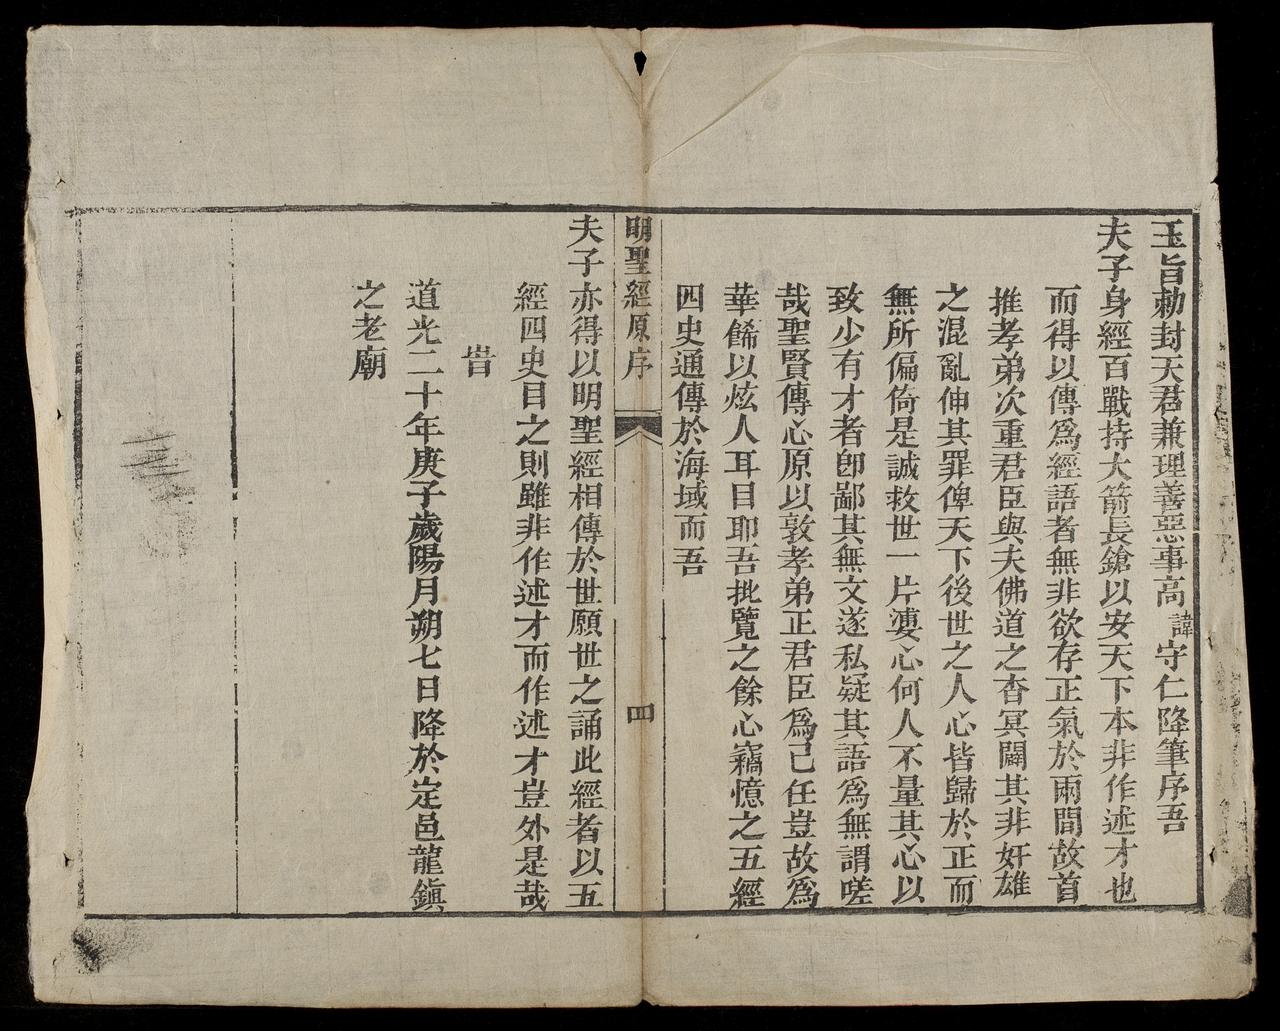 玉旨勅封天君兼理善惡事高諱守仁降筆序吾
夫子身經百戰持大箭長鎗以安天下本非作述才也
而得以傳爲經語者無非欲存正氣於兩間故首
推孝弟次重君臣與夫佛道之杳冥闢其非奸雄
之混亂伸其罪俾天下後世之人心皆歸於正而
無所偏倚是誠救世一片婆心何人不量其心以
致少有才者卽鄙其無文遂私疑其語爲無謂嗟
哉聖賢傳心原以敦孝弟正君臣爲己任豈故爲
華餙以炫人耳目耶吾批覽之餘心竊憶之五經
四史通傳於海域而吾
明聖經原序
四
夫子亦得以明聖經相傳於世願世之誦此經者以五
經四史目之則雖非作述才而作述才豈外是哉
旹
道光二十年庚子歲陽月朔七日降於定邑龍鎭
之老廟